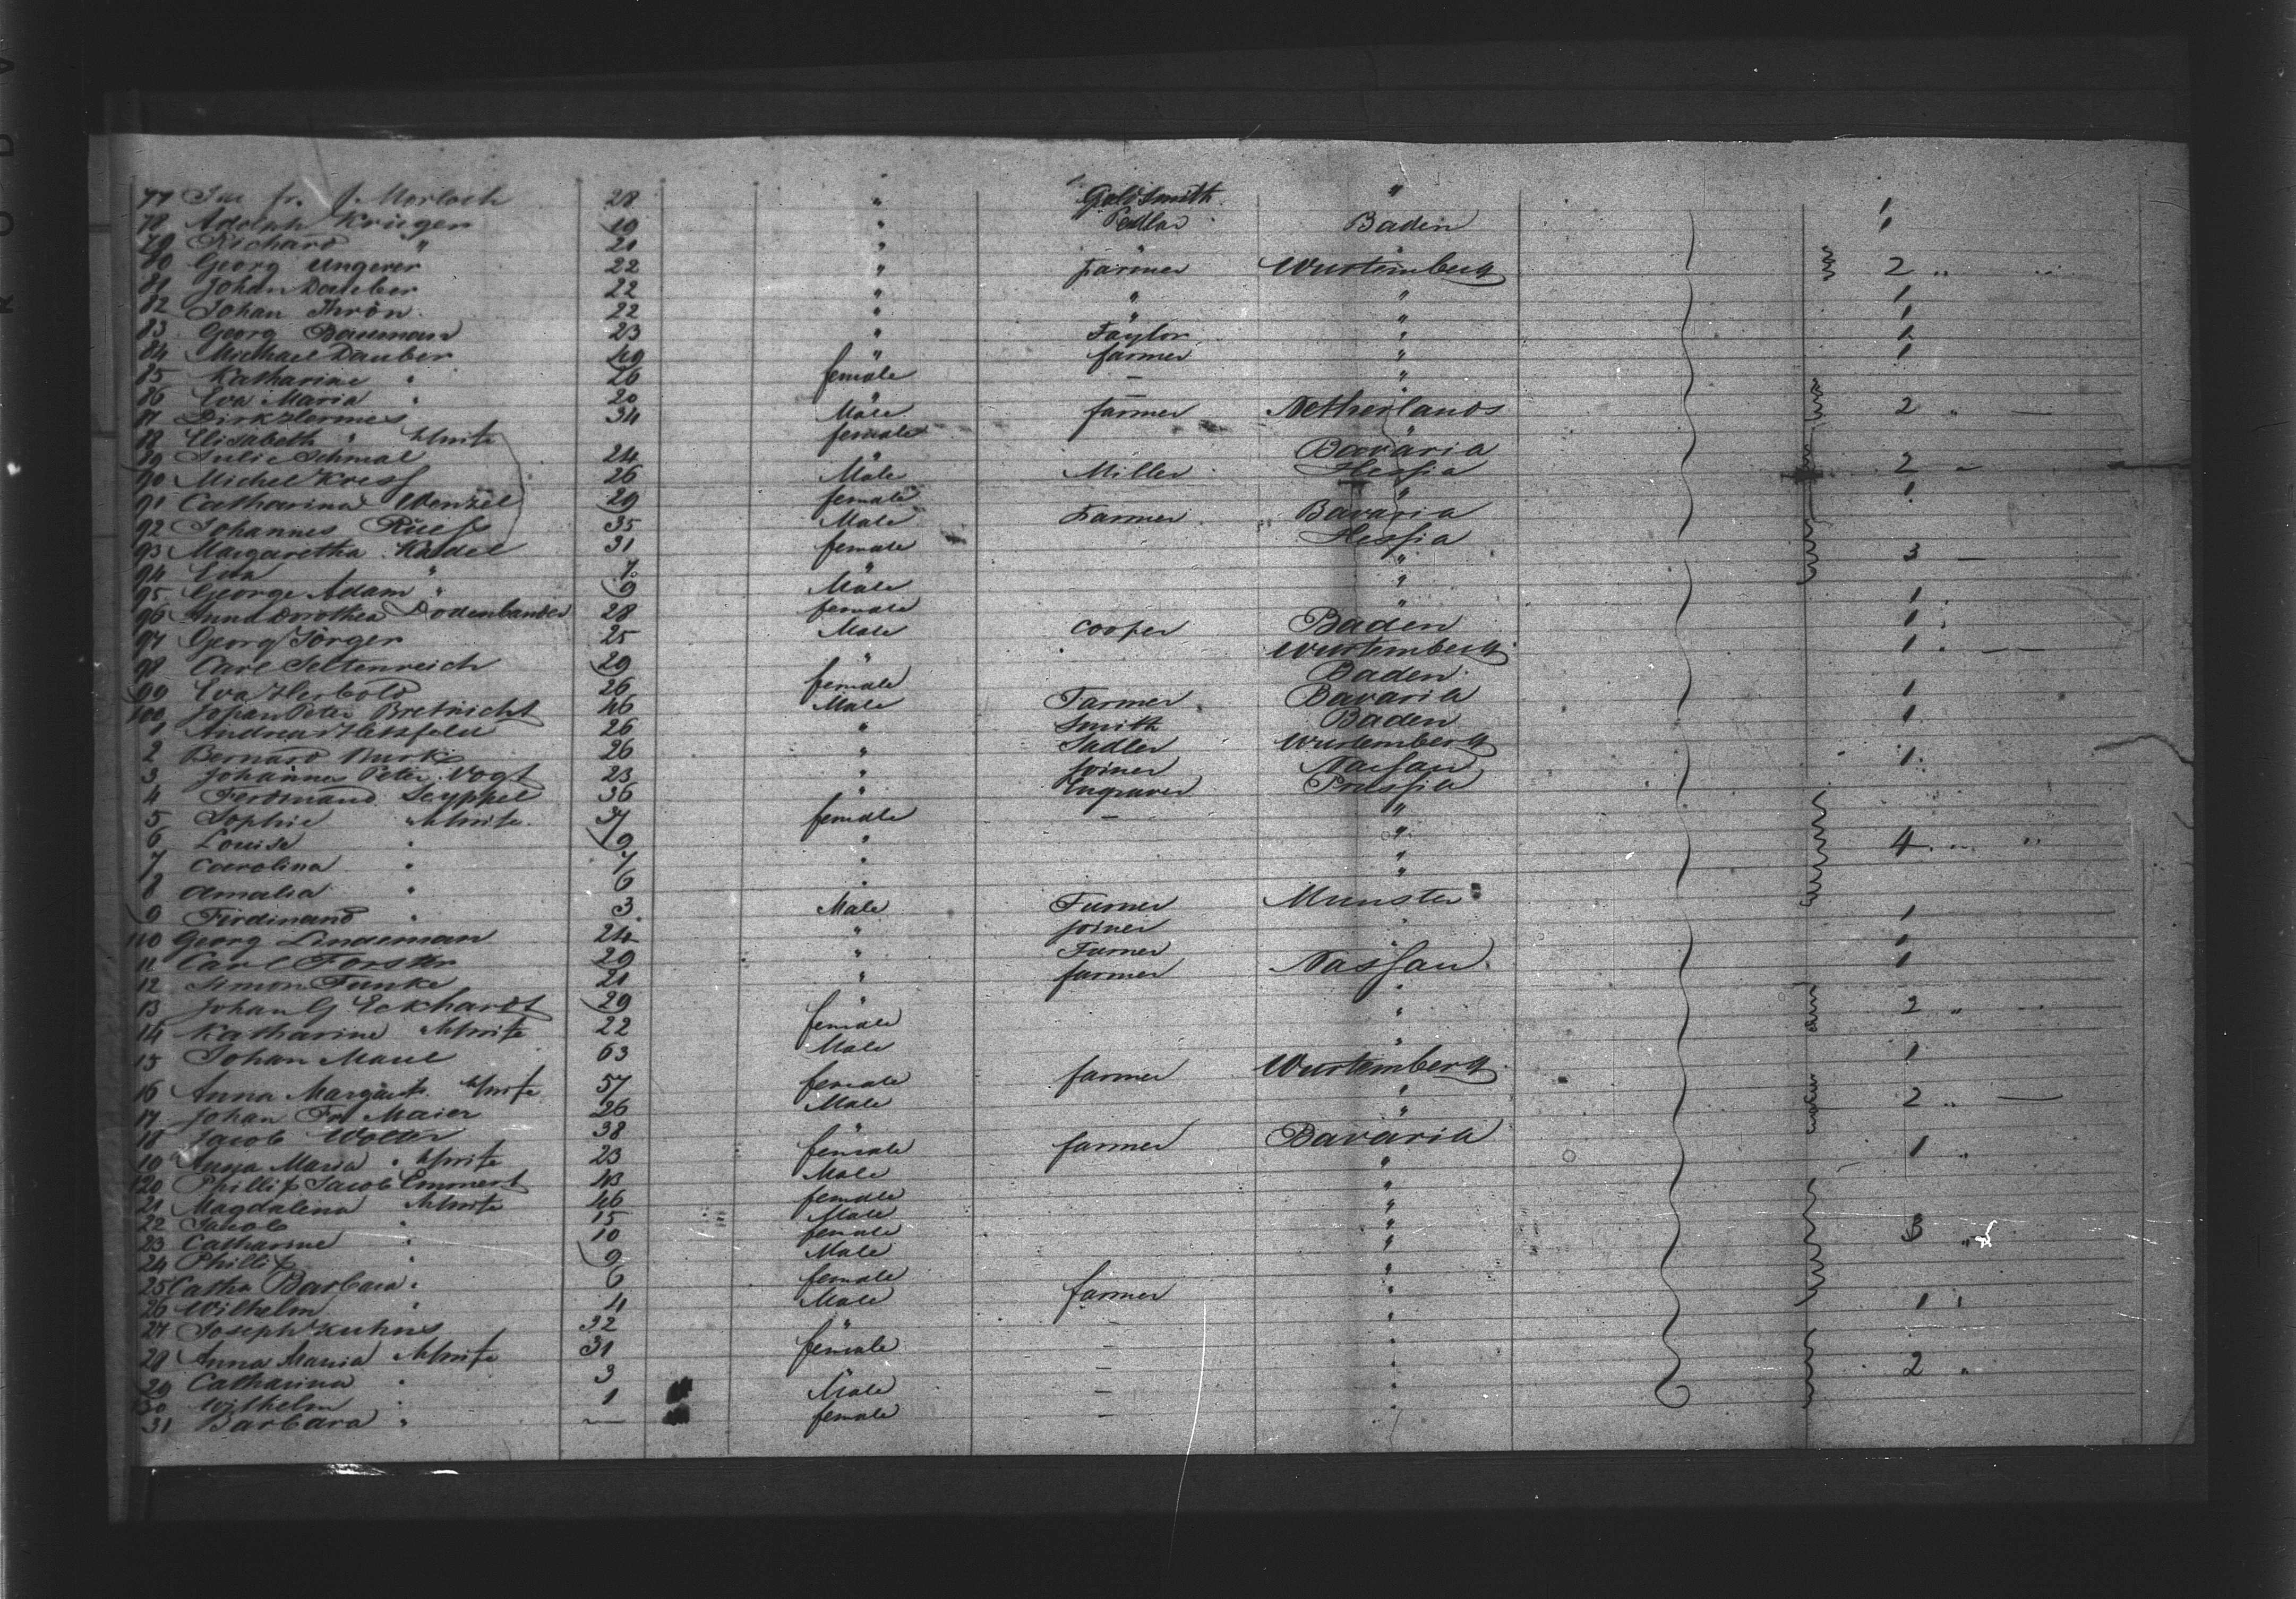 77 J. Morlock 28 " Goldsmith "
78 Adolph Krieger 19 " Pedlar Baden 1
79 Richard " 21 " " 1
80 Georg Ungerer 22 " farmer Wurtemberg 2 " "
81 Johan Dauber 22 " " " 1
82 Johan Thrön 22 " " 1
83 Georg Bauman 23 " Taylor " 1
84 Michael Dauber 49 " farmer " 1
85 Katharine " 26 female — "
86 Eva Maria " 20 " — "
87 Dirk Harmes 34 Male farmer Netherlands 2 " —
88 Elisabeth " Wife female "
89 Julie Schmal 24 " Bavaria
90 Michel Kress 26 Male Miller Hessia 2 "
91 Catharina Wenzel 29 female " 1
92 Johannes Ruef 35 Male Farmer Bavaria
93 Margaretha Kadel 31 female Hessia 3 —
94 Eva " 7 " "
95 George Adam " 9 Male "
96 Anna Dorothea Dodenbander 28 female " 1
97 Georg Jörger 25 Male Cooper Baden 1
98 Carl Seltenreich 29 " Wurtemberg 1 " —
99 Eva Herbold 26 female Baden
100 Johan Peter Bretnicht 46 Male Farmer Bavaria 1
1 Andreas 26 " Smith Baden 1
2 Bernard 26 " Sadler Wurtemberg
3 Johannes Peter Vogt 23 " Joiner Nassau 1
4 Ferdinand Seyppel 36 " Engraver Prussia
5 Sophie " Wife 37 female — "
6 Louise " 9 " " 4 " "
7 Carolina " 7 " "
8 Amalia " 6 " "
9 Ferdinand " 3 Male Turner Munster
110 Georg Lindeman 24 " Joiner " 1
11 Carl Forster 29 " Turner " 1
12 Simon Funke 21 " farmer Nassau 1
13 Johan G Eckhardt 29 " "
14 Katharine " Wife 22 female " 2 "
15 Johan Maul 63 Male " 1
16 Anna Margaret Wife 57 female farmer Wurtemberg
17 Johan Fr Maier 26 Male " 2 " —
18 Jacob Wolter 38 " "
19 Anna Maria " Wife 23 female farmer Bavaria 1 "
120 Phillip Jacob Emmert 43 Male "
21 Magdalena Wife 46 female "
22 Jacob " 15 Male "
23 Catharine " 10 female " 3 "
24 Phillip " 9 Male "
25 Catha Barbara " 6 female "
26 Wilhelm " 4 Male farmer " 1
27 Joseph Kuhns 32 " — "
28 Anna Maria Wife 31 female — "
29 Catharina " 3 " — " 2 "
30 Wilhelm " 1 Male — "
31 Barbara " — female — "